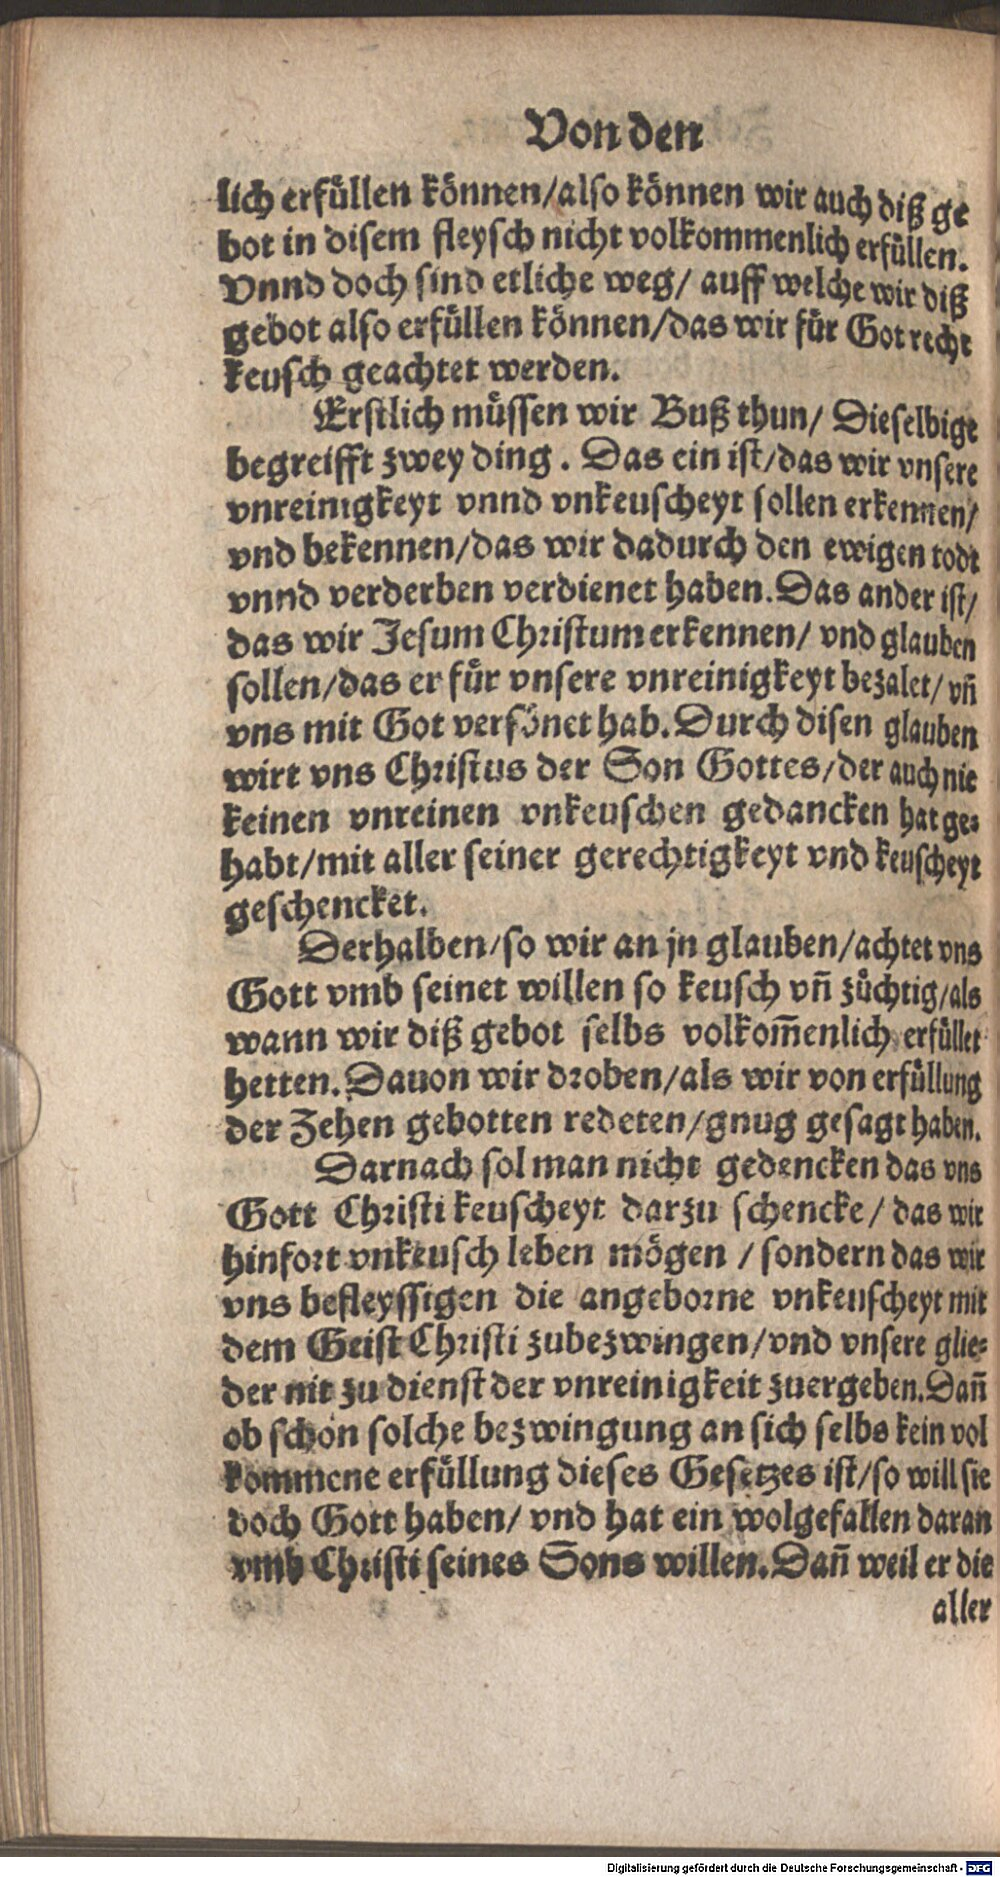 Von den
lich erfüllen können/also können wir auch diß ge
bot in disem fleysch nicht volkommenlich erfüllen.
Vnnd doch sind etliche weg/ auff welche wir diß
gebot also erfüllen können/das wir für Got recht
keusch geachtet werden.
Erstlich müssen wir Buß thun/ Dieselbige
begreifft zwey ding. Das ein ist/das wir vnsere
vnreinigkeyt vnnd vnkeuscheyt sollen erkennen/
vnd bekennen/das wir dadurch den ewigen todt
vnnd verderben verdienet haben. Das ander ist/
das wir Jesum Christum erkennen/ vnd glauben
sollen/das er für vnsere vnreinigkeyt bezalet/ vñ
vns mit Got versönet hab. Durch disen glauben
wirt vns Christus der Son Gottes/der auch nie
keinen vnreinen vnkeuschen gedancken hat ge-
habt/mit aller seiner gerechtigkeyt vnd keuscheyt
geschencket.
Derhalben/so wir an jn glauben/achtet vns
Gott vmb seinet willen so keusch vñ züchtig/als
wann wir diß gebot selbs volkom̃enlich erfüllet
hetten. Dauon wir droben/als wir von erfüllung
der Zehen gebotten redeten/gnug gesagt haben.
Darnach sol man nicht gedencken das vns
Gott Christi keuscheyt darzu schencke/ das wir
hinfort vnkeusch leben mögen /sondern das wir
vns befleyssigen die angeborne vnkeuscheyt mit
dem Geist Christi zubezwingen/vnd vnsere glie-
der nit zu dienst der vnreinigkeit zuergeben. Dañ
ob schon solche bezwingung an sich selbs kein vol
kommene erfüllung dieses Gesetzes ist/so will sie
doch Gott haben/ vnd hat ein wolgefallen daran
vmb Christi seines Sons willen. Dañ weil er die
aller
Digitalisierung gefördert durch die Deutsche Forschungsgemeinschaft - DFG